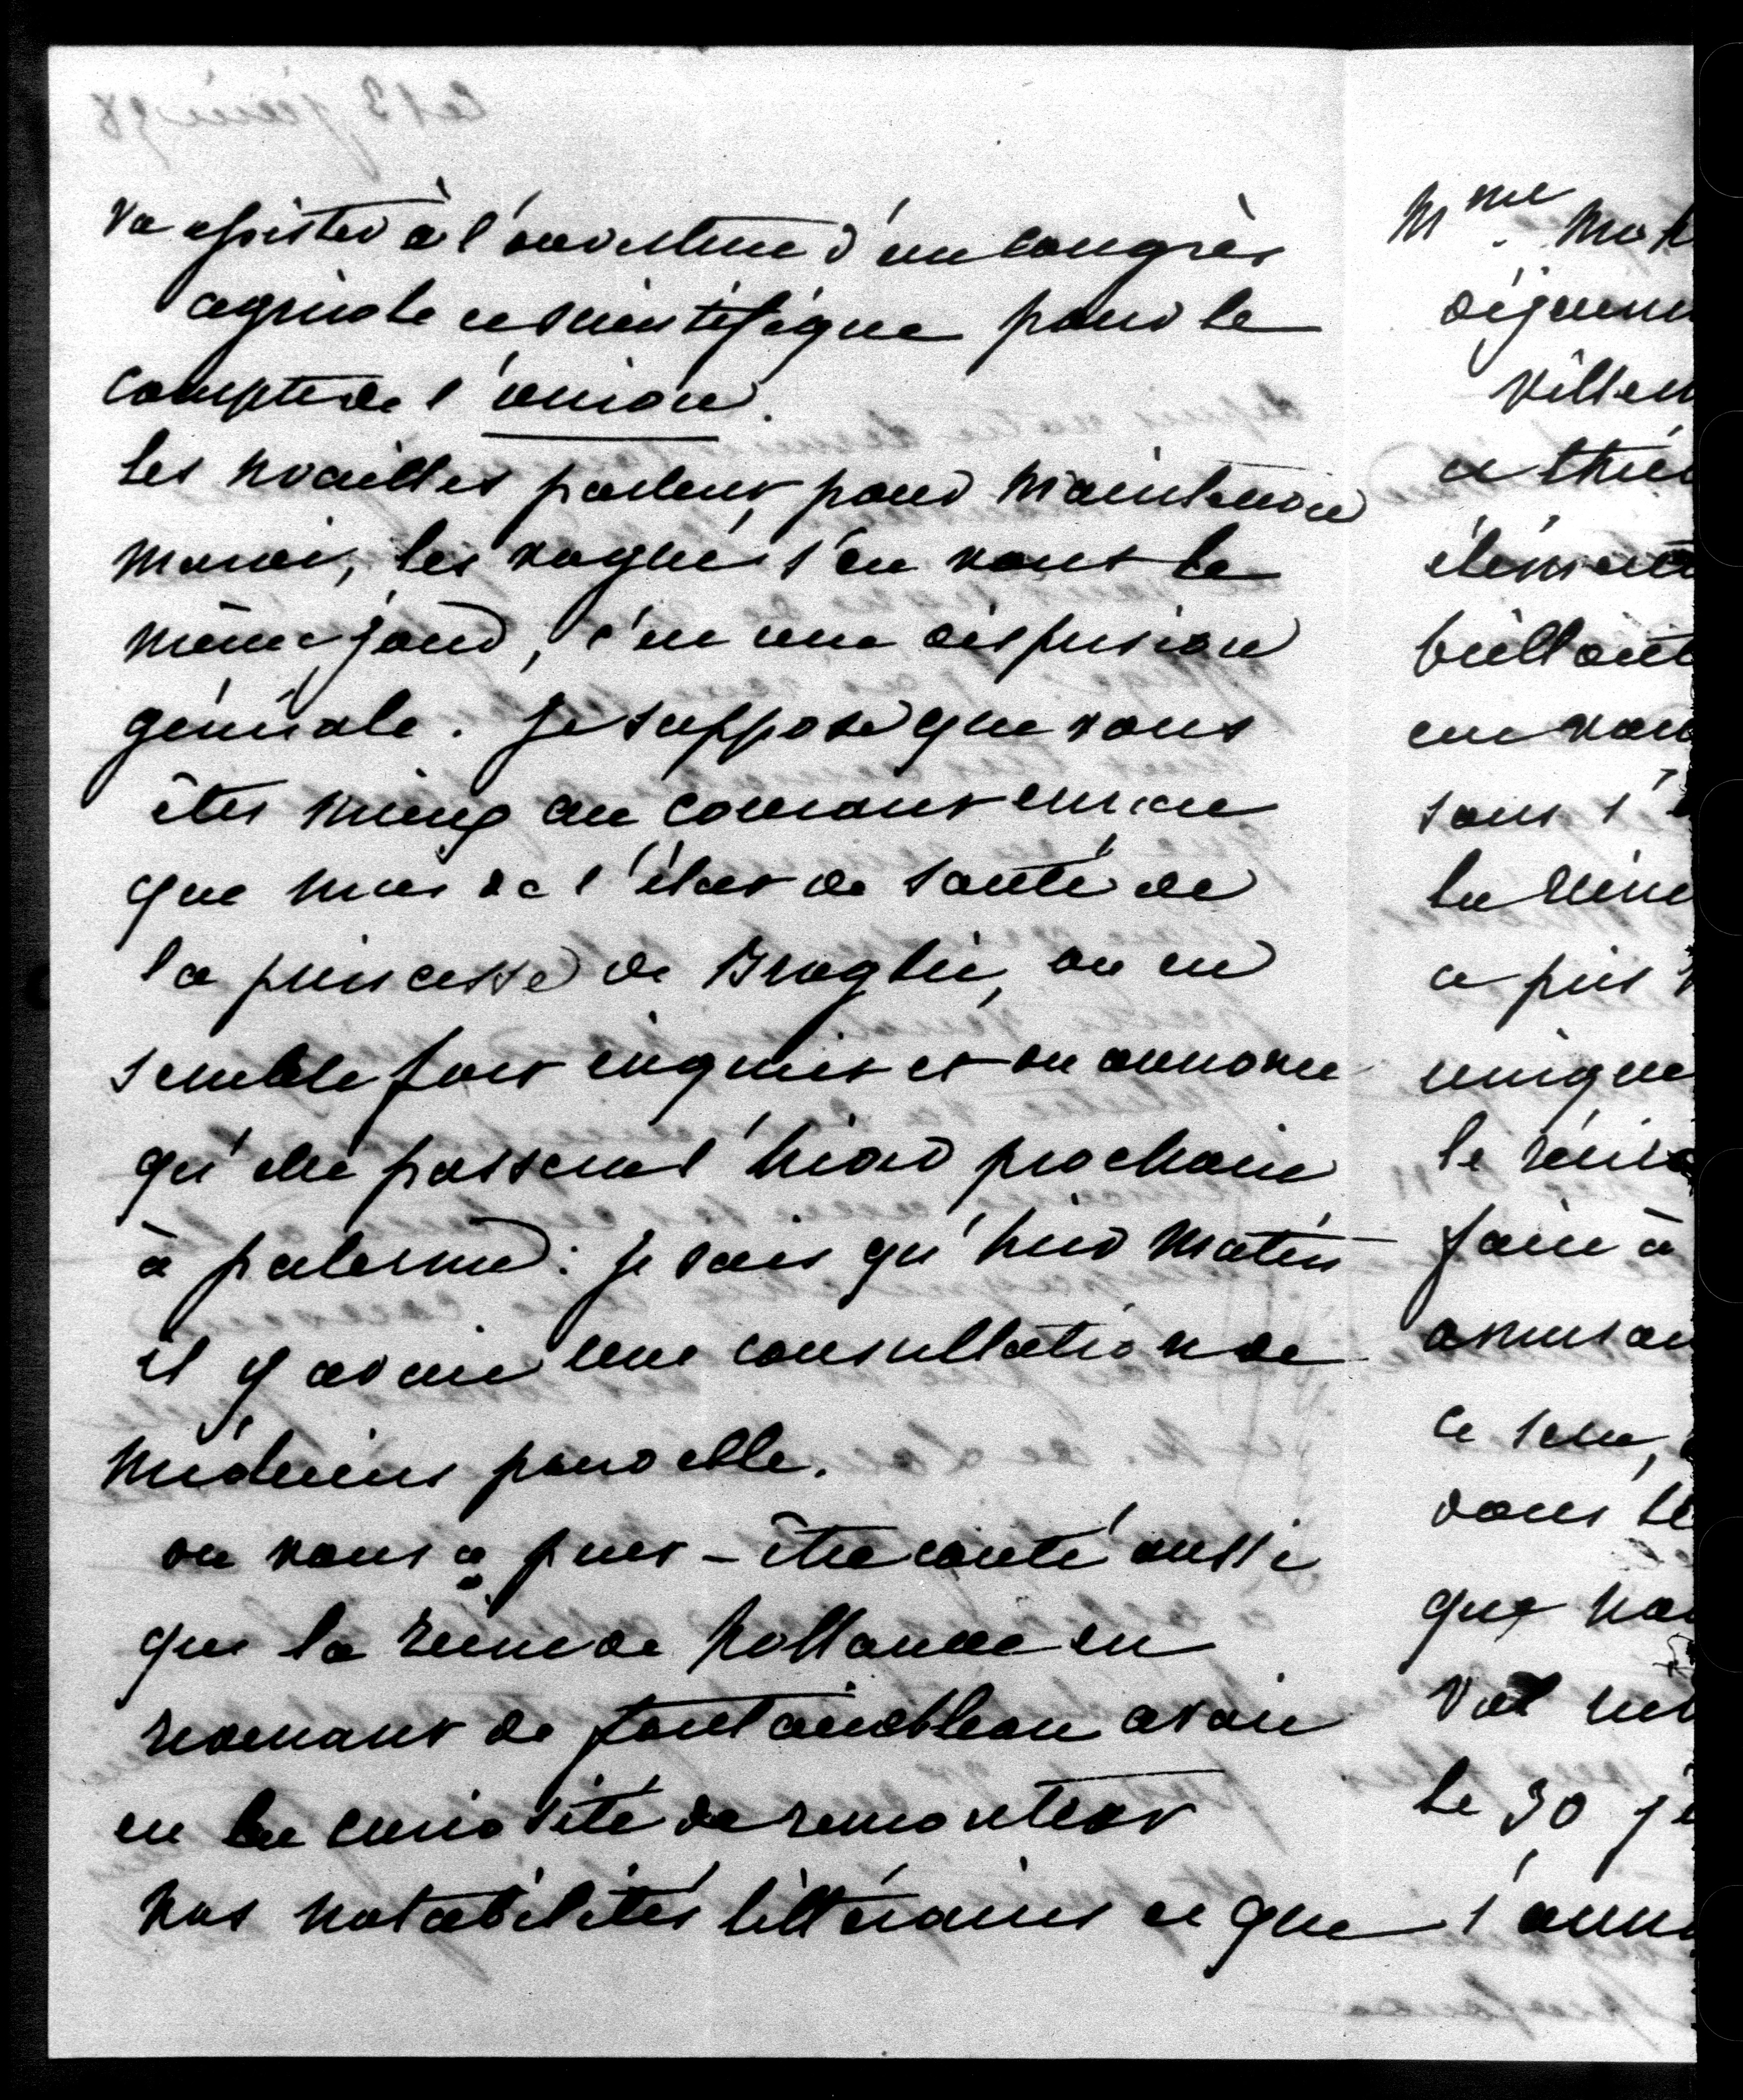 va assister à l'ouverture d'un congrès
agricole et scientifique pour le
compte de l'union.
les noailles partent pour Maintenon
mardi, les vogüé s'en vont le
même jour, c'est une dispersion
générale. Je suppose que vous
êtes mieux au courant encore
que moi de l'état de santé de
la princesse de Broglie, on en
semble fort inquiet et on annonce
qu'elle passera l'hiver prochain
à palerme : je sais qu'hier matin
il y avait une consultation de
médecins pour elle.
on vous a peut-être conté aussi
que la reine de hollande en
revenant de fontainebleau avait
eu la curiosité de rencontrer
nos notabilités littéraires et que
Mme.
villem
et
élément
brillant
en vou
sans s'
la reine
a pris
unique
le
faire à
amusan
ce
dans le
que
Val
le 30
s'ann